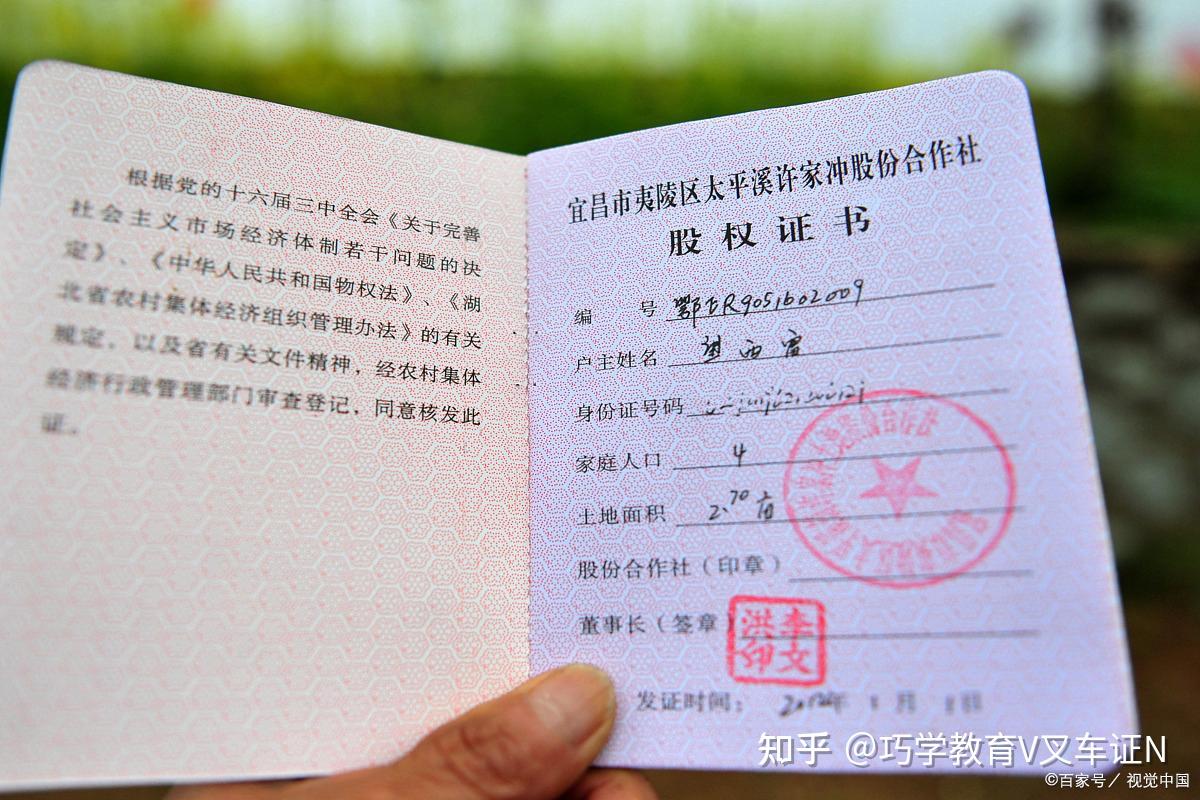 根据党的十六届三中全会《关于完善
社会主义市场经济体制若干问题的决
定》、《中华人民共和国物权法》、《湖
北省农村集体经济组织管理办法》的有关
规定，以及省有关文件精神，经农村集体
经济行政管理部门审查登记，同意核发此
证。
宜昌市夷陵区太平溪许家冲股份合作社
股权证书
编 号 鄂ER9051602009
户主姓名
身份证号码
家庭人口 4
土地面积 2.70亩
股份合作社（印章）
董事长（签章）
李文洪印
发证时间： 年 月 日
知乎 @巧学教育V叉车证N
©百家号／视觉中国